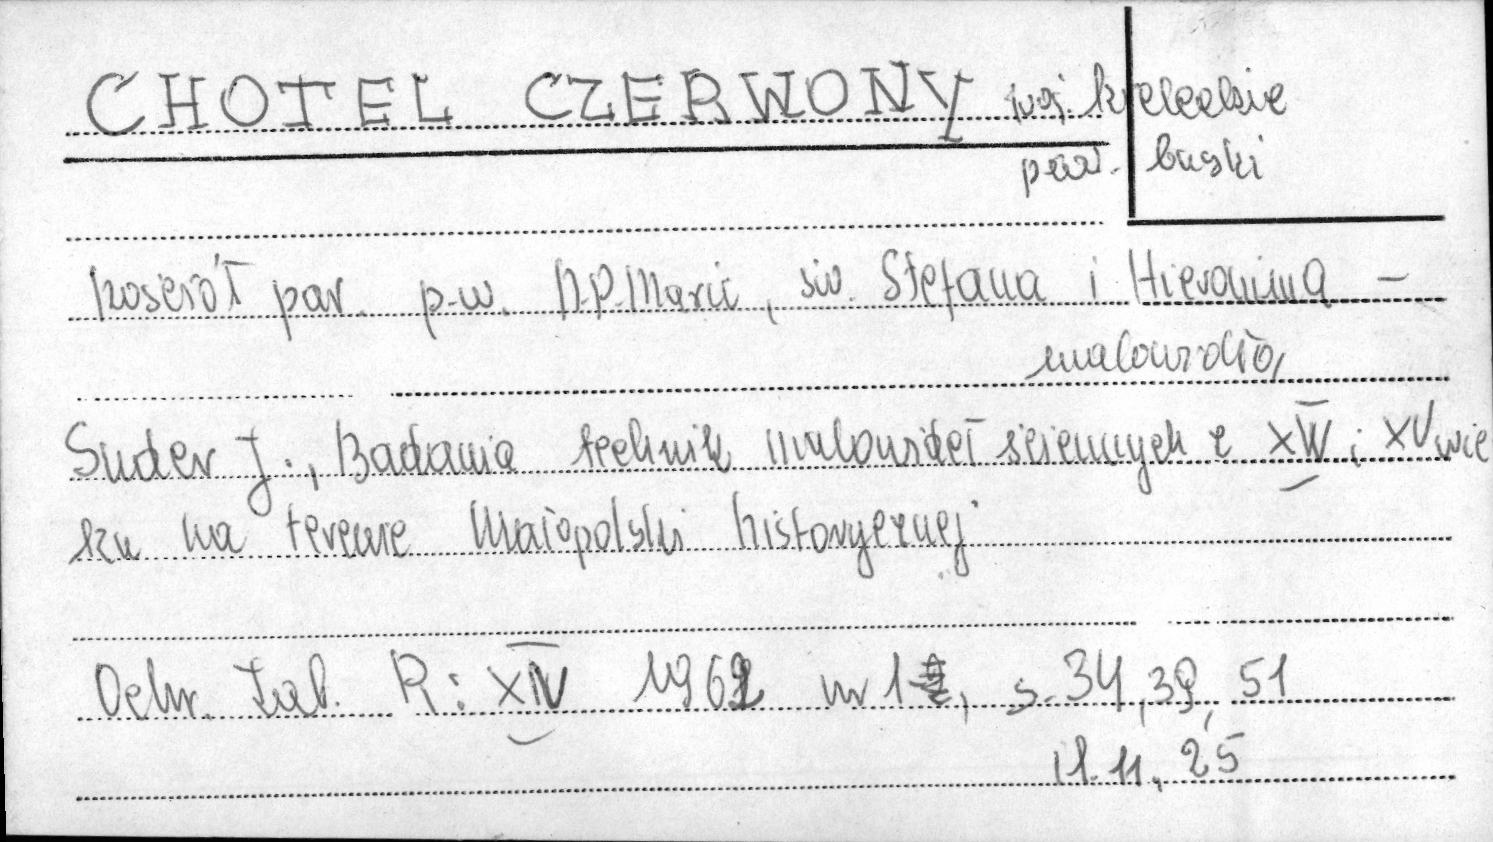 CHOTEL CZERWONY woj. kieleckie
pow. buski
kościół par. p.w. N.P.Marii, św. Stefana i Hieronima –
malowidło,
Suder J., Badania technik malowideł ściennych z XIV i XV wie
ku na terenie Małopolski historycznej
Ochr. Zab. R: XIV 1962 nr 1, s. 34, 39, 51
il. 11, 25